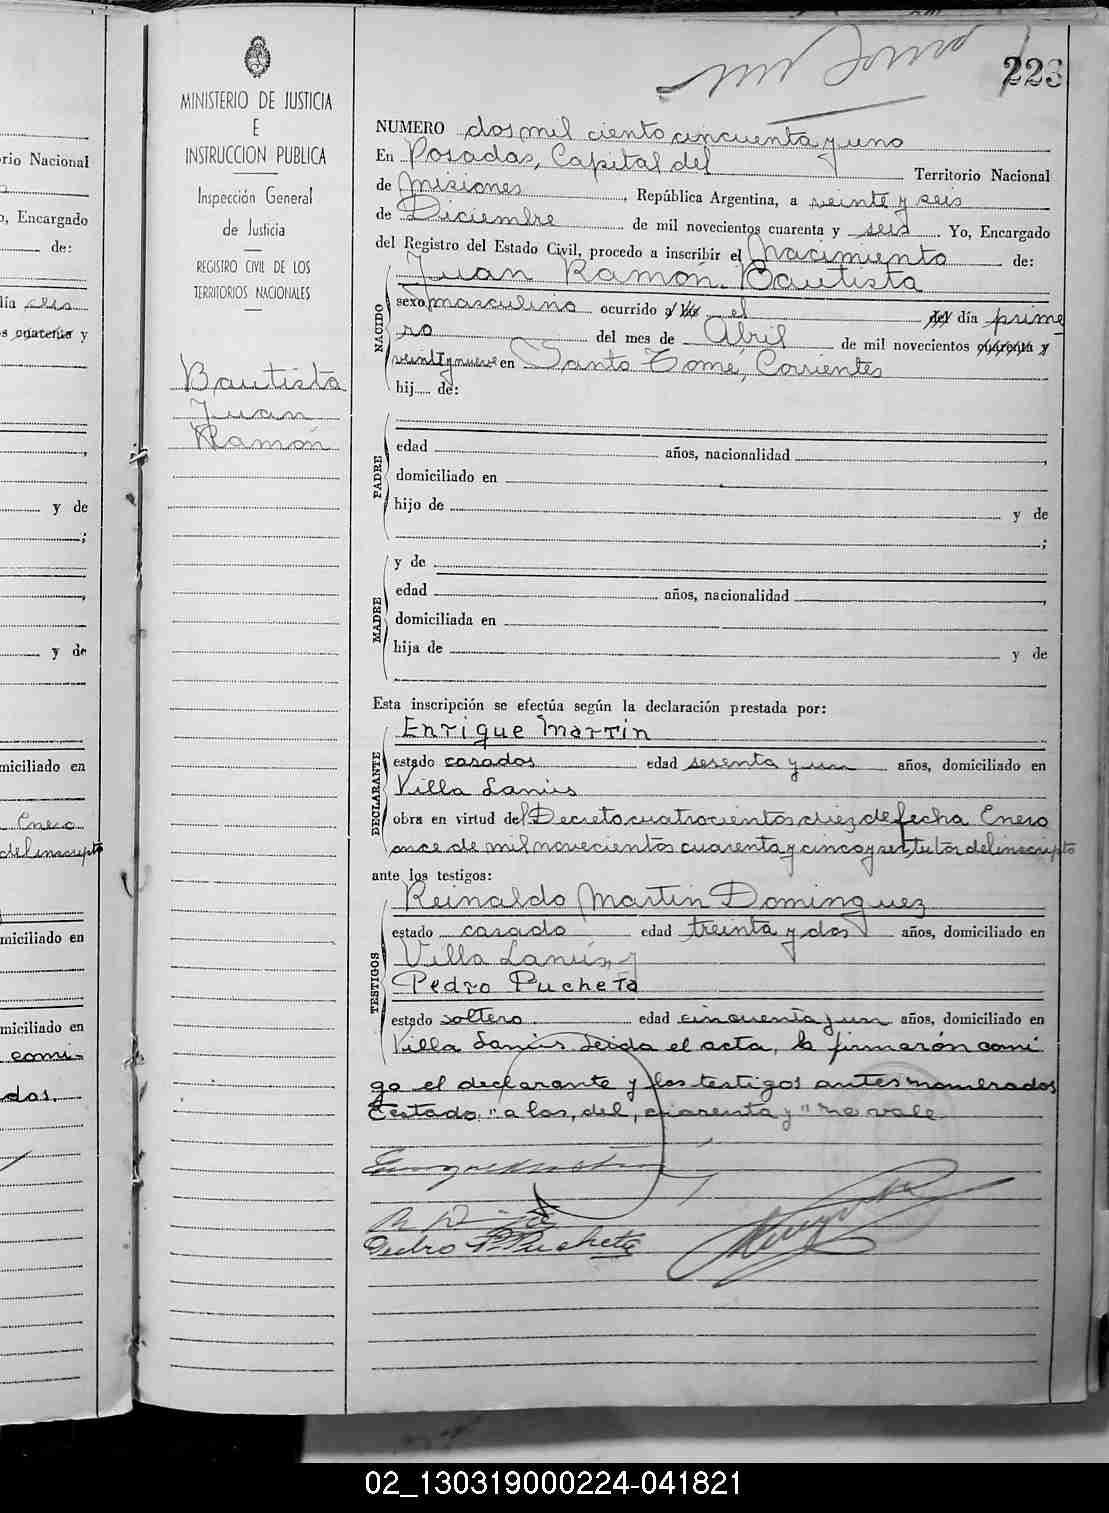 223
MINISTERIO DE JUSTICIA
E
INSTRUCCION PUBLICA
Inspección General
de Justicia
REGISTRO CIVIL DE LOS
TERRITORIOS NACIONALES
Bautista
Juan
Ramón
NUMERO dos mil ciento cincuenta y uno
En Posadas, Capital del Territorio Nacional
de Misiones, República Argentina, a veinte y seis
de Diciembre de mil novecientos cuarenta y seis. Yo, Encargado
del Registro del Estado Civil, procedo a inscribir el Nacimiento de:
Juan Ramon Bautista
NACIDO
sexo masculino ocurrido a las el del día prime
ro del mes de Abril de mil novecientos cuarenta y
veinte y nueve en Santo Tomé, Corrientes
hij de:
PADRE
edad años, nacionalidad ,
domiciliado en
hijo de y de
;
MADRE
y de
edad años, nacionalidad ,
domiciliada en
hija de y de
Esta inscripción se efectúa según la declaración prestada por:
DECLARANTE
Enrique Martin
estado casados edad sesenta y un años, domiciliado en
Villa Lanús
obra en virtud del Decreto cuatrocientos diez de fecha Enero
once de mil novecientos cuarenta y cinco y ser, tutor del inscripto
ante los testigos:
TESTIGOS
Reinaldo Martin Dominguez
estado casado edad treinta y dos años, domiciliado en
Villa Lanús, y
Pedro Pucheta
estado soltero edad cincuenta y un años, domiciliado en
Villa Lanús. Leida el acta, la firmarón comi
go el declarante y los testigos antes nombrados
Testado: "a las, del, cuarenta y" no vale
Pedro P. Pucheta
rio Nacional
, Encargado
de:
día
s cuarenta y
y de
;
,
y de
miciliado en
Enero
del inscripto
miciliado en
miciliado en
comi-
dos.
02_130319000224-041821